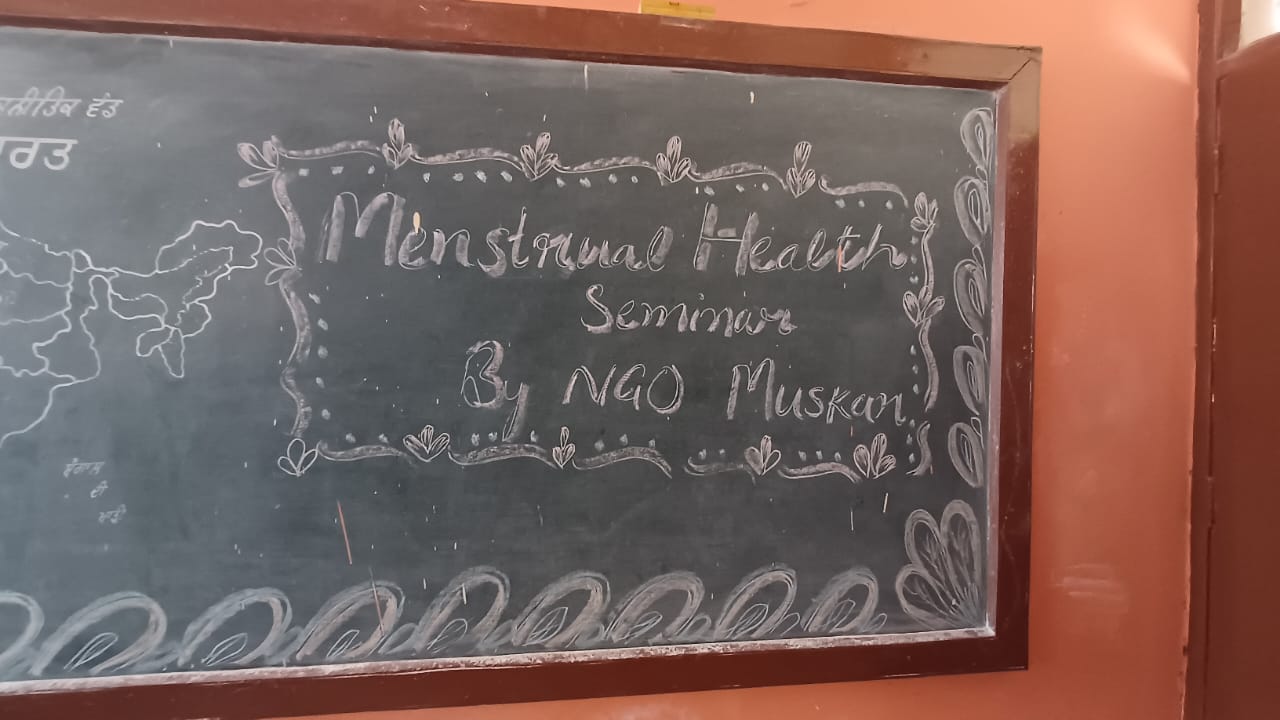 ਵੰਡ
Menstrual Health
Seminar
By NGO Muskan
ਦੀ